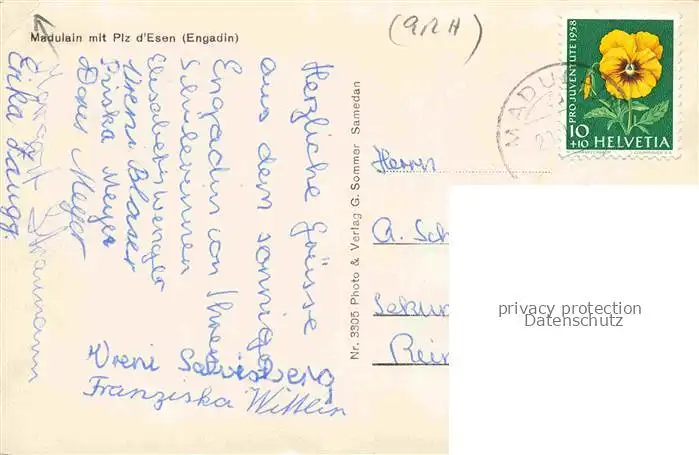 Madulain mit Piz d'Esen (Engadin)
(GRH)
Herzliche Grüsse
aus dem sonnigen
Engadin von Ihren
Schülerinnen
Elisabeth Wenger
Vreni Blaser
Priska Meyer
Dora Meyer
Straumann
Erika Zaugg.
Vreni Salvisberg
Franziska Wittlin
Nr. 3305 Photo & Verlag G. Sommer Samedan
PRO JUVENTUTE 1958
10
+10 HELVETIA
MADU
Herrn
A. Sch
Sekun
Rein
privacy protection
Datenschutz